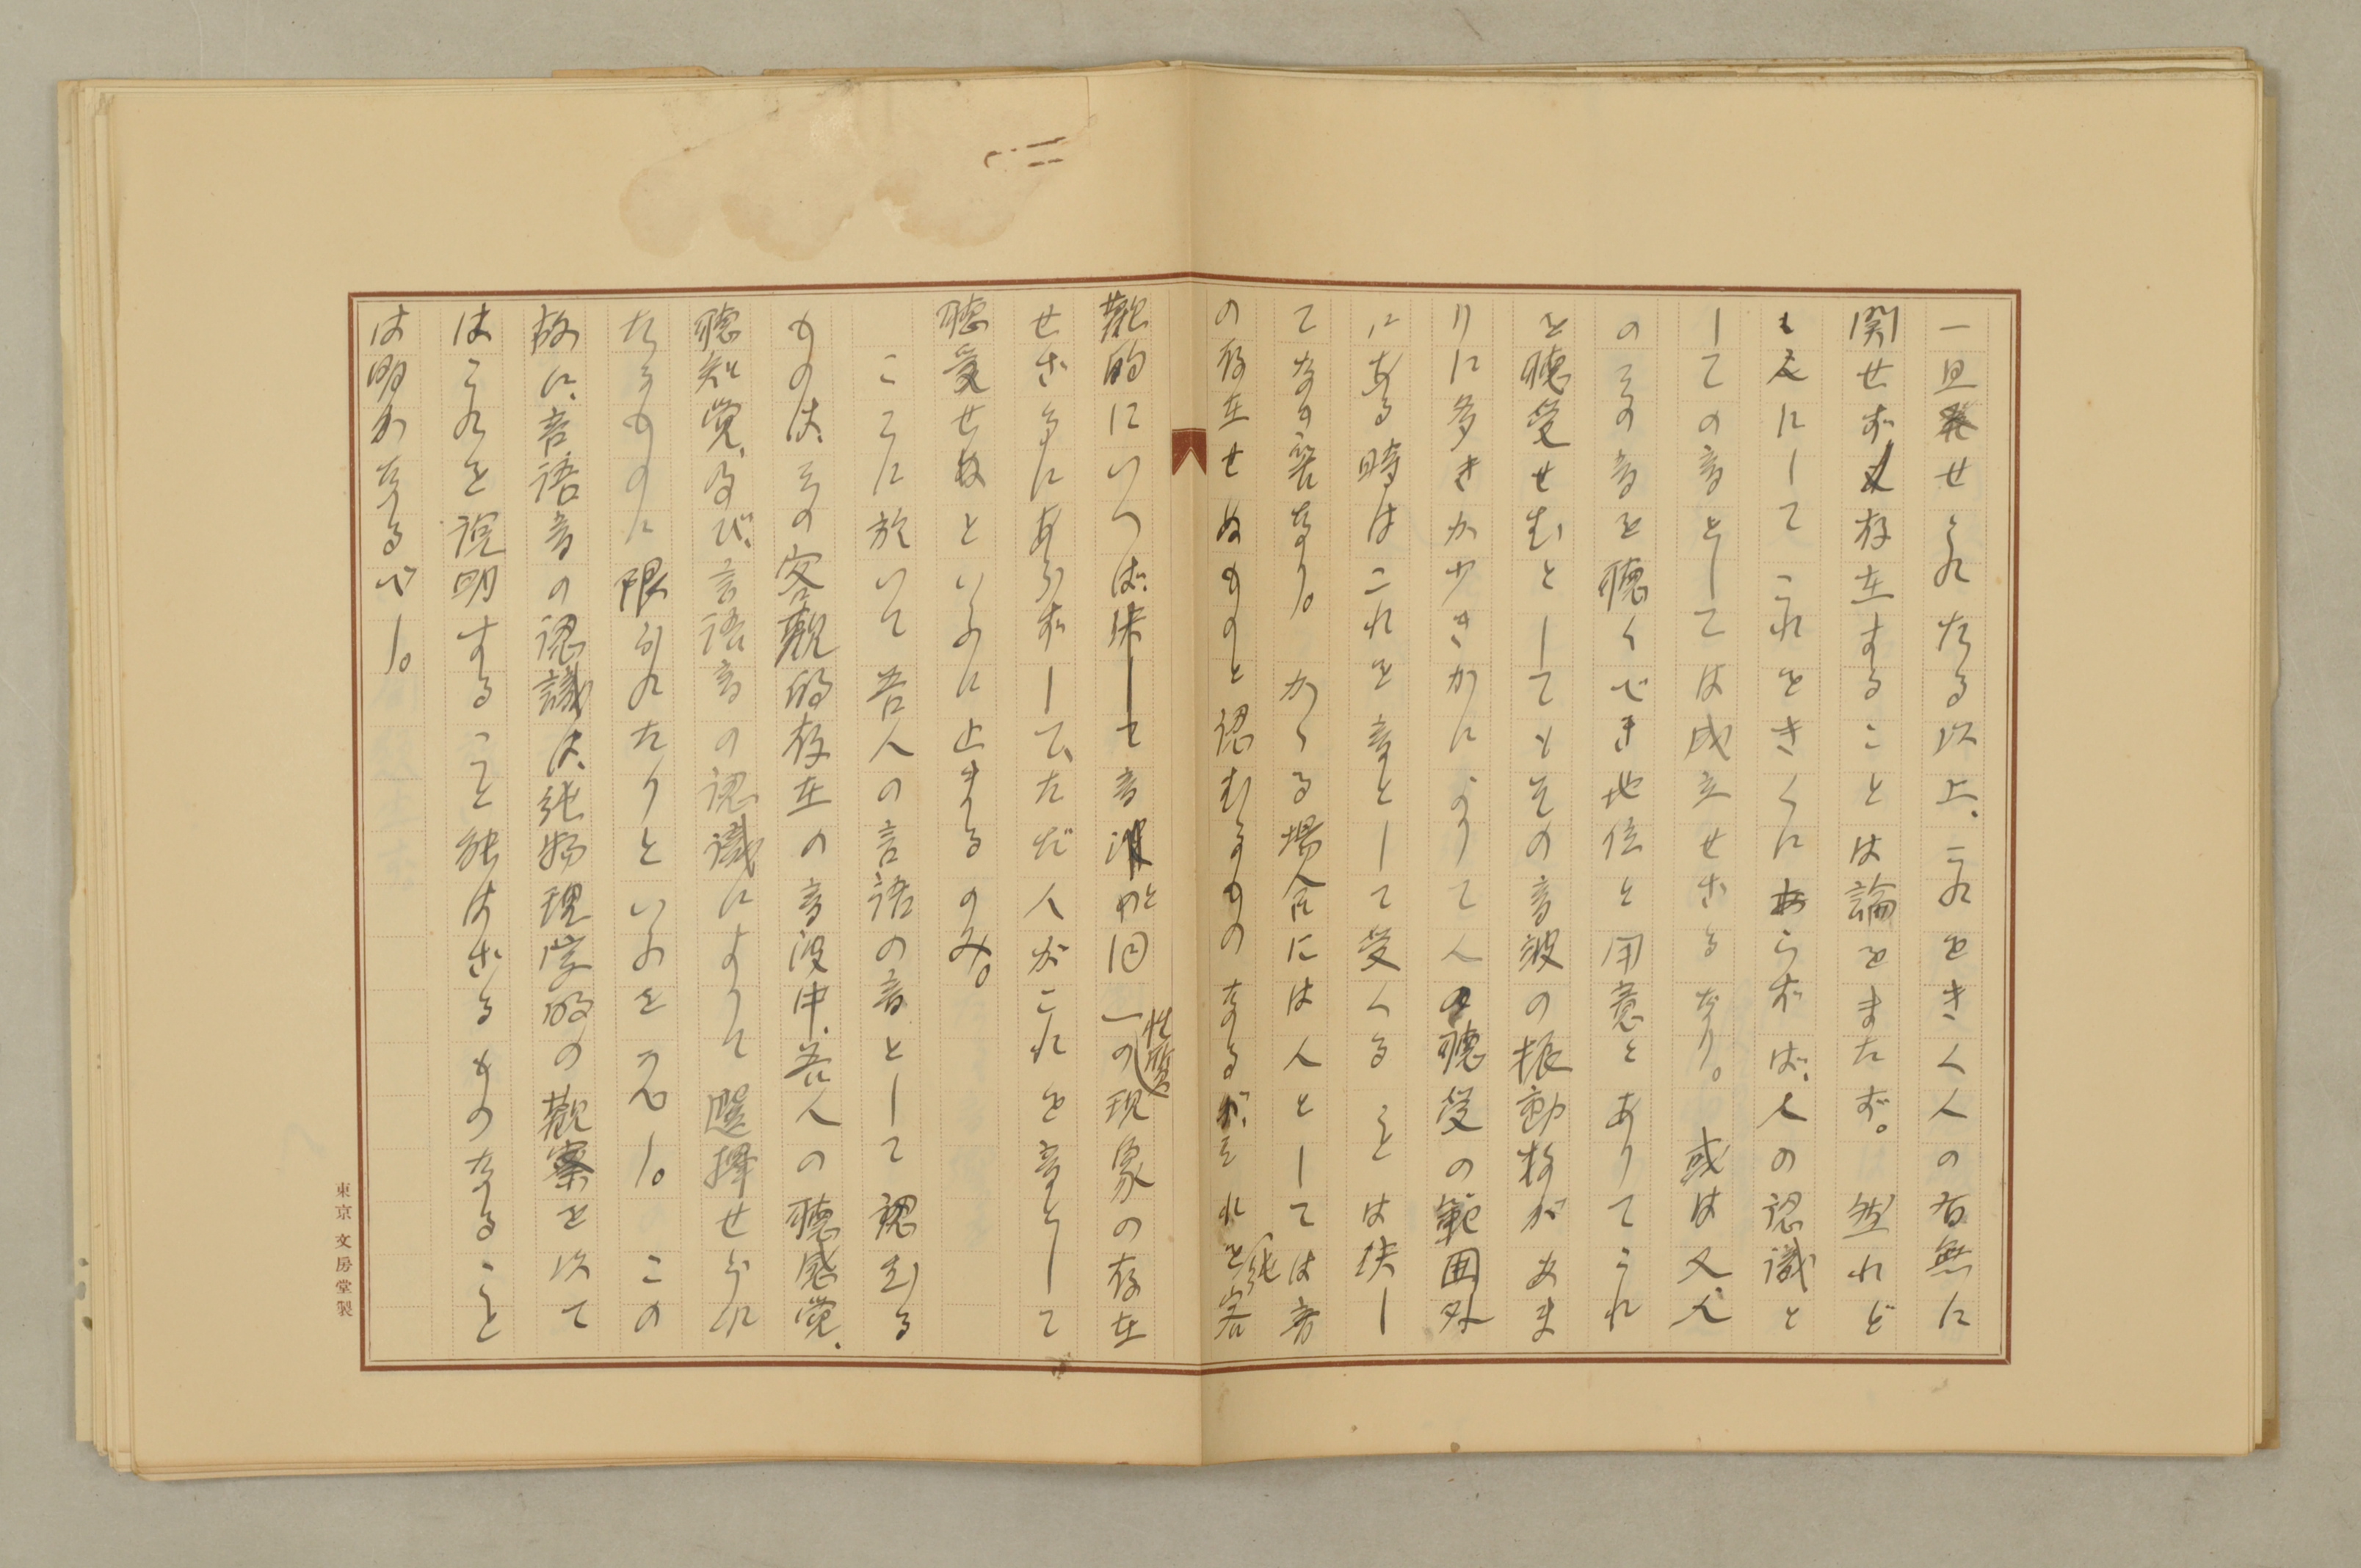 一旦発せられたる以上、これをきく人の有無に
関せず存在することは論をまたず。然れど
も人にしてこれをきくにあらずば、人の認識と
しての音としては成立せざるなり。或は又人
のその音を聴くべき地位と用意とありてこれ
を聴受せむとしてもその音波の振動数があま
りに多きか少きかによりて人の聴受の範囲外
にある時はこれを音として受くることは決し
てなき筈なり。かゝる場合には人としては音
の存在せぬものと認むるものなるが、それを純客
観的にいへば、決して音波と同一性質の現象の存在
せざるにあらずして、ただ人がこれを音として
聴受せぬといふに止まるのみ。
こゝに於いて吾人の言語の音として認むる
ものは、その客観的存在の音波中、吾人の聴感覚、
聴知覚、及び、言語音の認識によりて選択せられ
たるものに限られたりといふを得べし。この
故に、言語音の認識は、純物理学的の観察を以て
はこれを説明すること能はざるものなること
は明かなるべし。
東京文房堂製